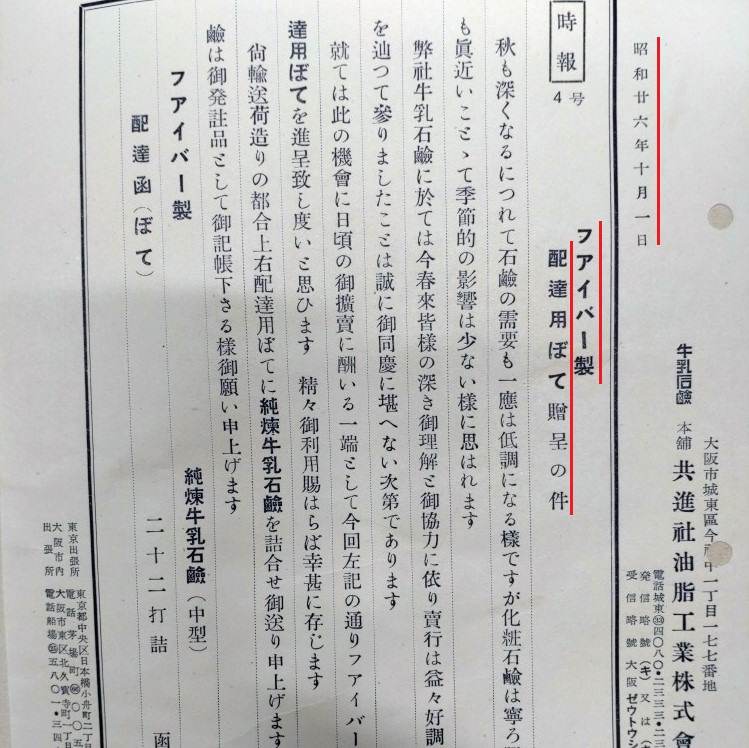 大阪市城東區今福中一丁目一七七番地
牛乳石鹼 本舗 共進社油脂工業株式會
電話城東㉝四〇八〇・二三三三・二三
発信略號(キ)又は(
受信略號 大阪ゼウトウシ
昭和廿六年十月一日
時報
4号
フアイバー製
配達用ぼて贈呈の件
秋も深くなるにつれて石鹼の需要も一應は低調になる樣ですが化粧石鹼は寧ろ
も眞近いことゝて季節的の影響は少ない樣に思はれます
弊社牛乳石鹼に於ては今春來皆樣の深き御理解と御協力に依り賣行は益々好調
を辿つて參りましたことは誠に御同慶に堪へない次第であります
就ては此の機會に日頃の御擴賣に酬いる一端として今回左記の通りフアイバー
達用ぼてを進呈致し度いと思ひます 精々御利用賜はらば幸甚に存じます
尙輸送荷造りの都合上右配達用ぼてに純煉牛乳石鹼を詰合せ御送り申上げます
鹼は御発註品として御記帳下さる樣御願い申上げます
フアイバー製
配達函(ぼて)
純煉牛乳石鹼(中型)
二十二打詰
函
東京出張所 東京都中央区日本橋小舟町二丁目
電話茅場町㊅〇〇・五
大阪市内出張所 大阪市東区北久寳寺町一丁目
電話船場㉕五八〇一・三四